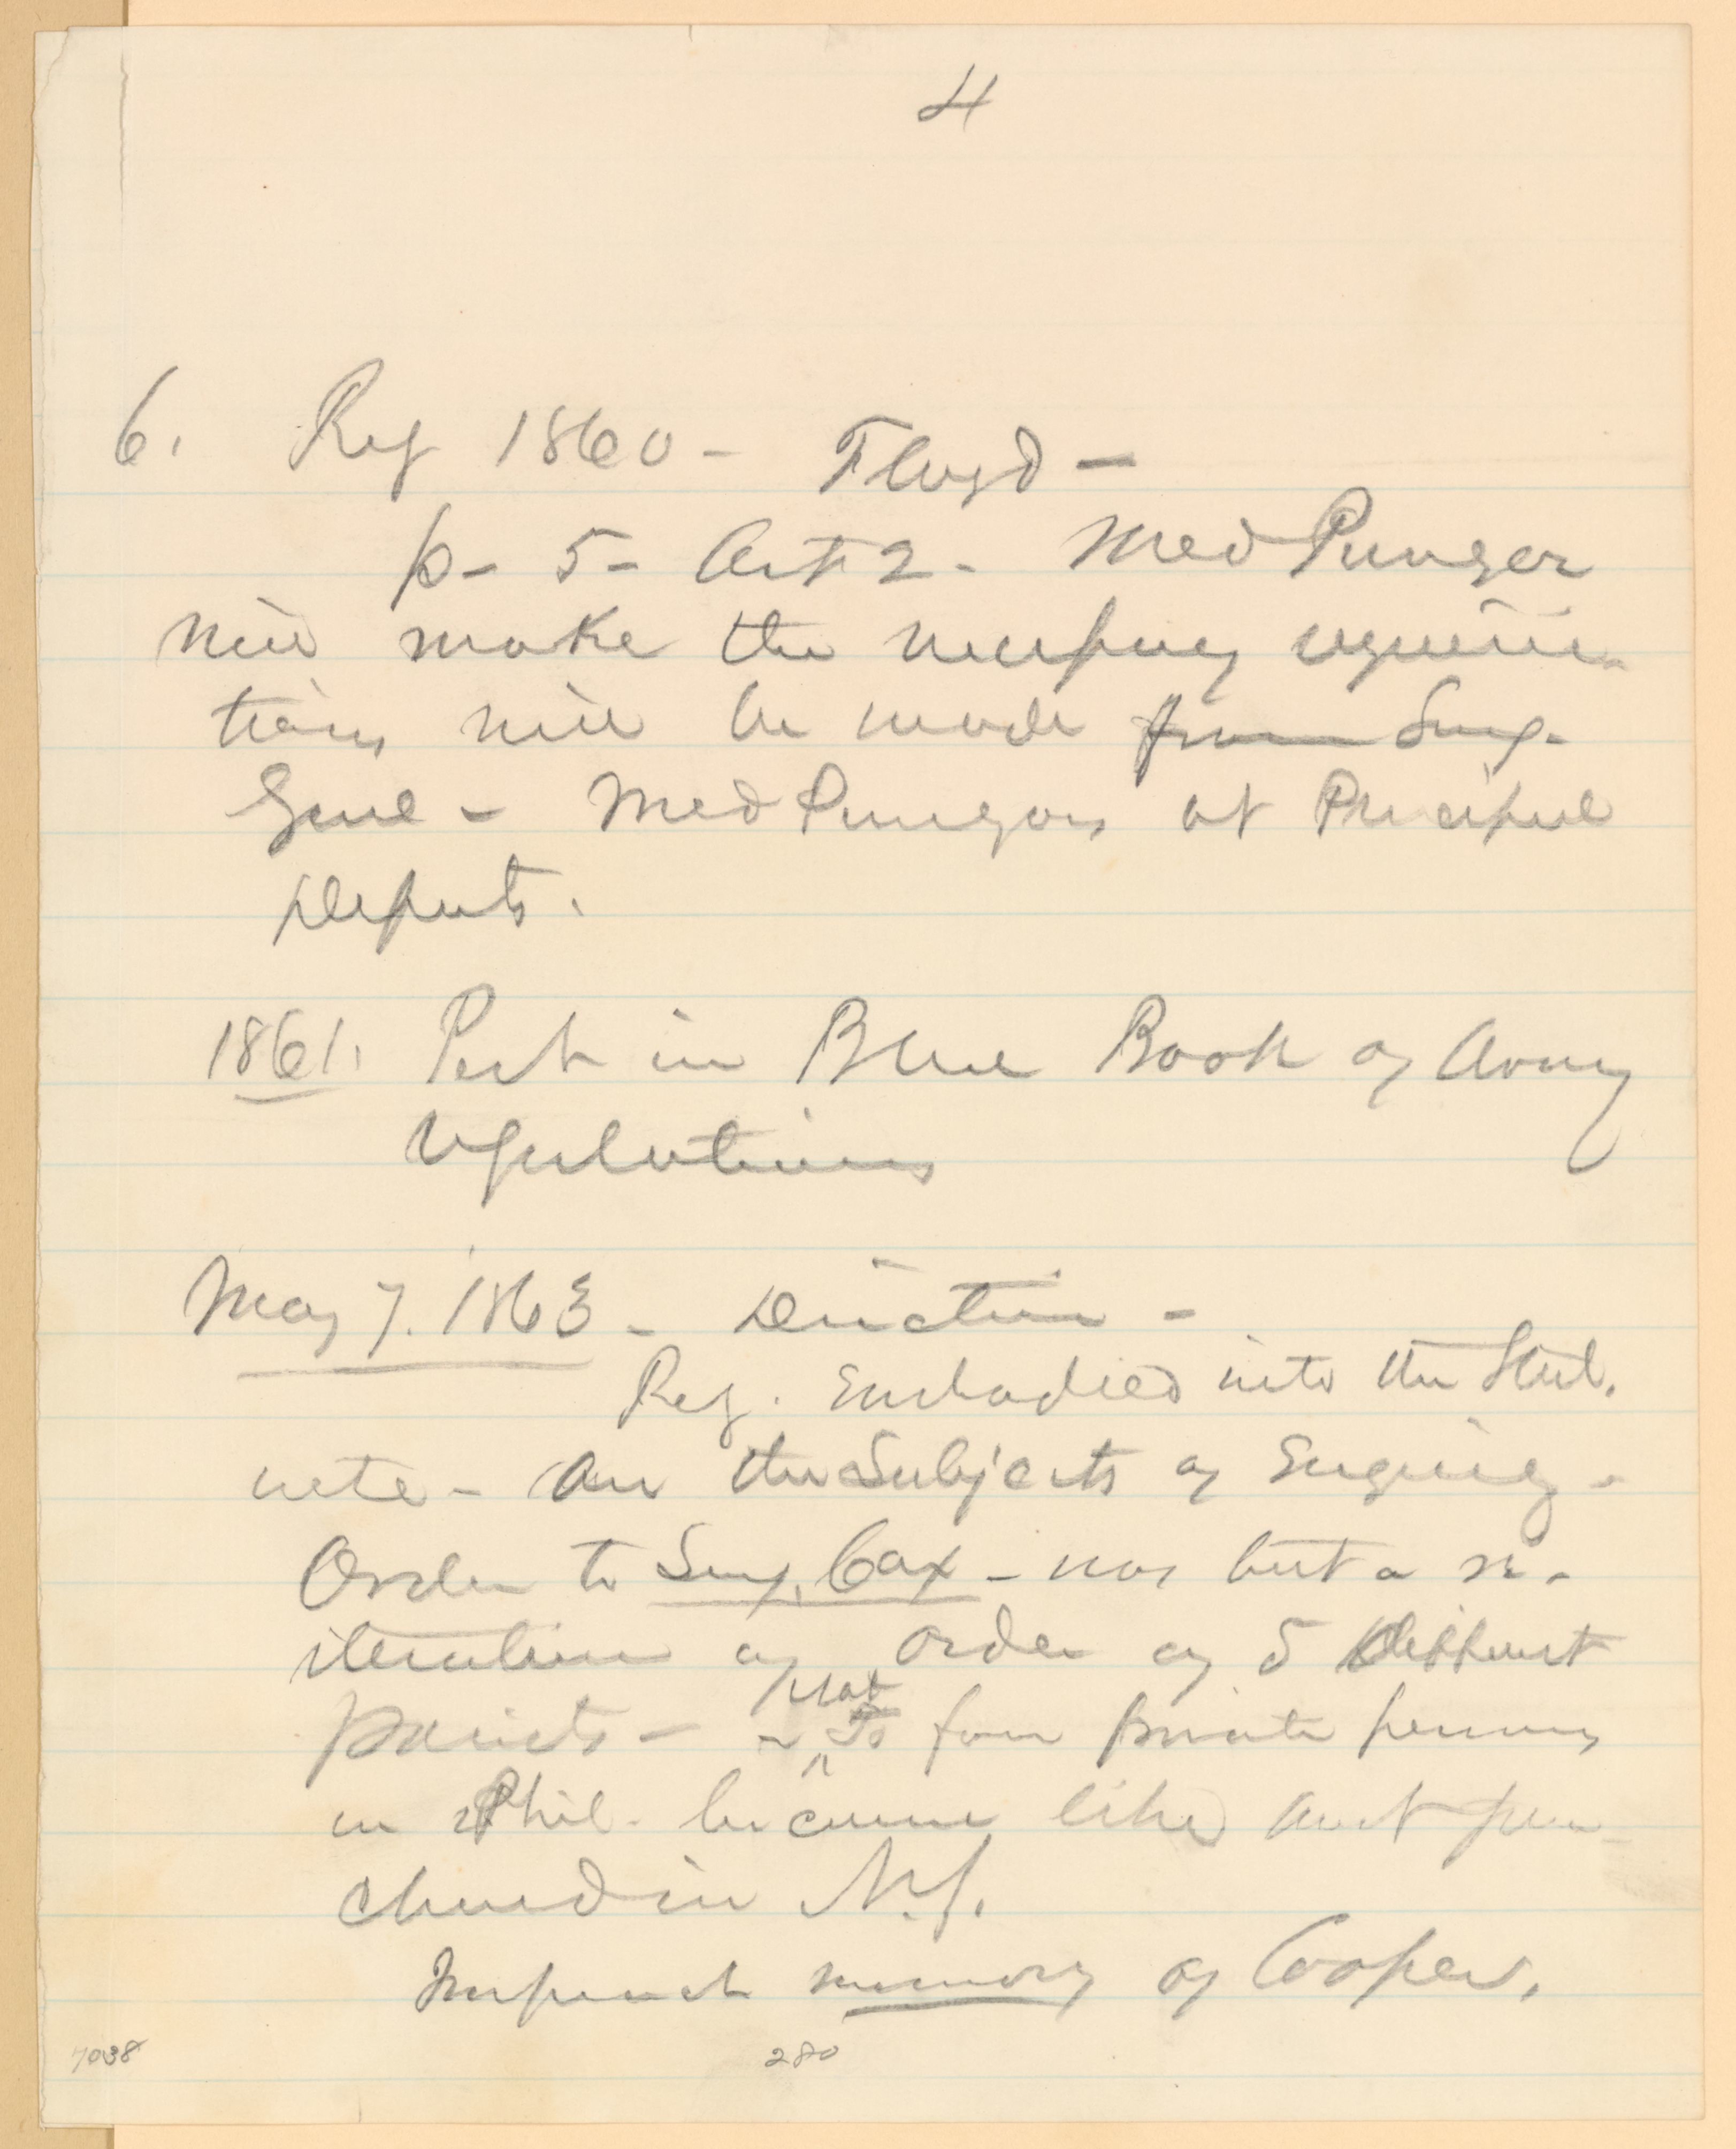 4
6. Reg 1860 - Floyd -
p - 5 - Art 2 - Med Purveyor
will make the necessary requisi-
tions will be made from Surg.
Genl - Med Purveyors at Principal
Depots.
1861. Put in Blue Book of Army
regulations
May 7. 1863 - Direction -
Reg. Embodied into the
- on the Subjects of
Order to Surg. Cox - was but a re-
iteration of order of 5 different
points - that to four private persons
in Phil. became like pur-
chased in N.Y.
Impeach memory of Cooper.
7038 280